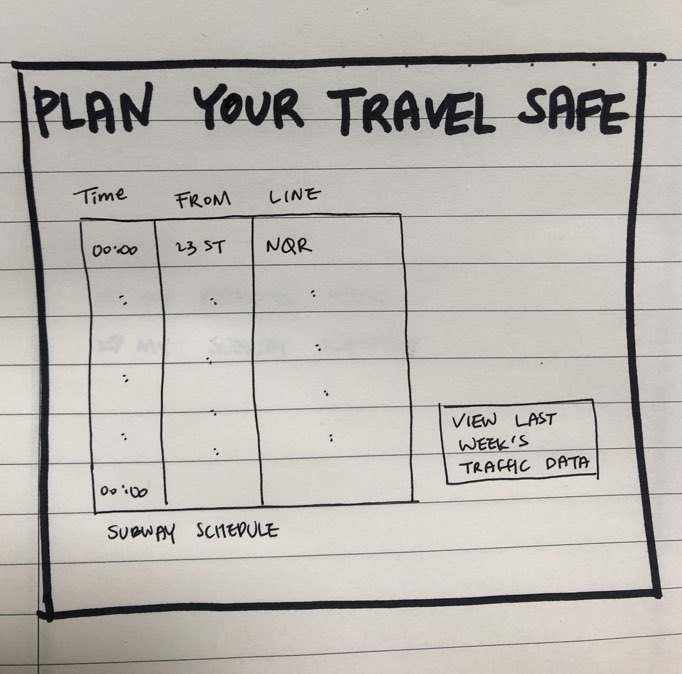 PLAN YOUR TRAVEL SAFE
Time FROM LINE
00:00 23 ST NQR
00:00
SUBWAY SCHEDULE
VIEW LAST
WEEK'S
TRAFFIC DATA